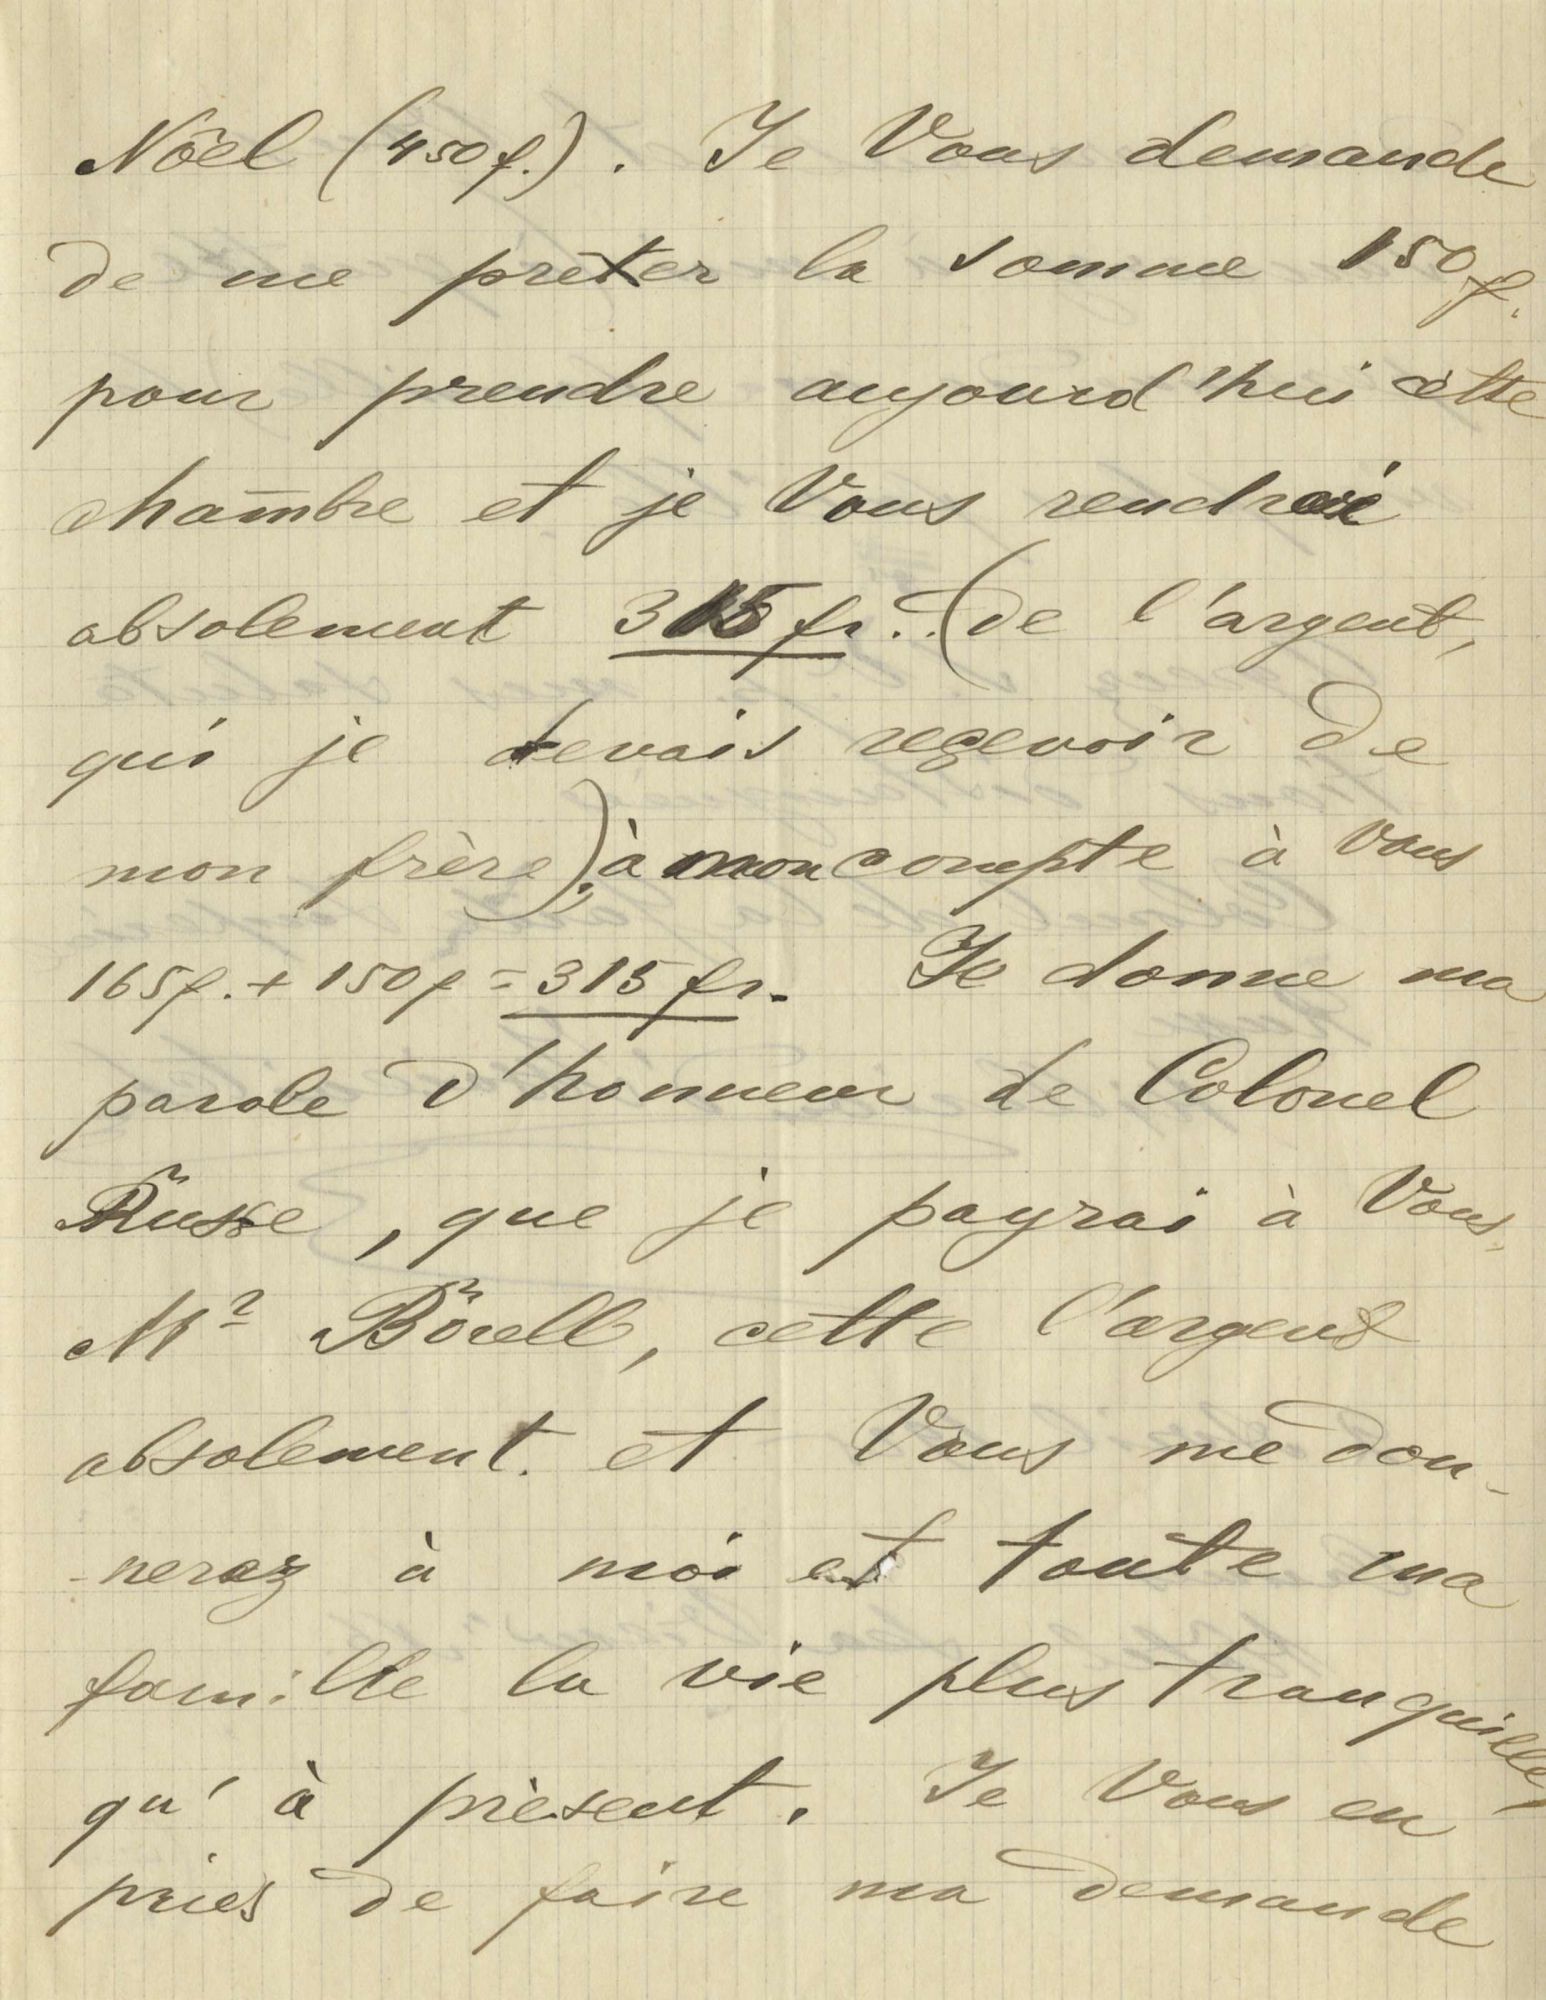 Nöel (450 f.). Je Vous demande
de me prêter la somme 150 f.
pour prendre aujourd'hui cette
chambre et je Vous rendrai
absolement 315 fr. (de l'argent,
qui je devais reçevoir de
mon frère), à mon compte à Vous
165 f. + 150 f = 315 fr. Je donne ma
parole d'honneur de Colonel
Russe, que je payrai à Vous,
Mr Borell, cette l'argent
absolement. et Vous me don-
-nerez à moi et toute ma
famille la vie plus tranquille,
qu' à prèsent. Je Vous en
pries de faire ma demande